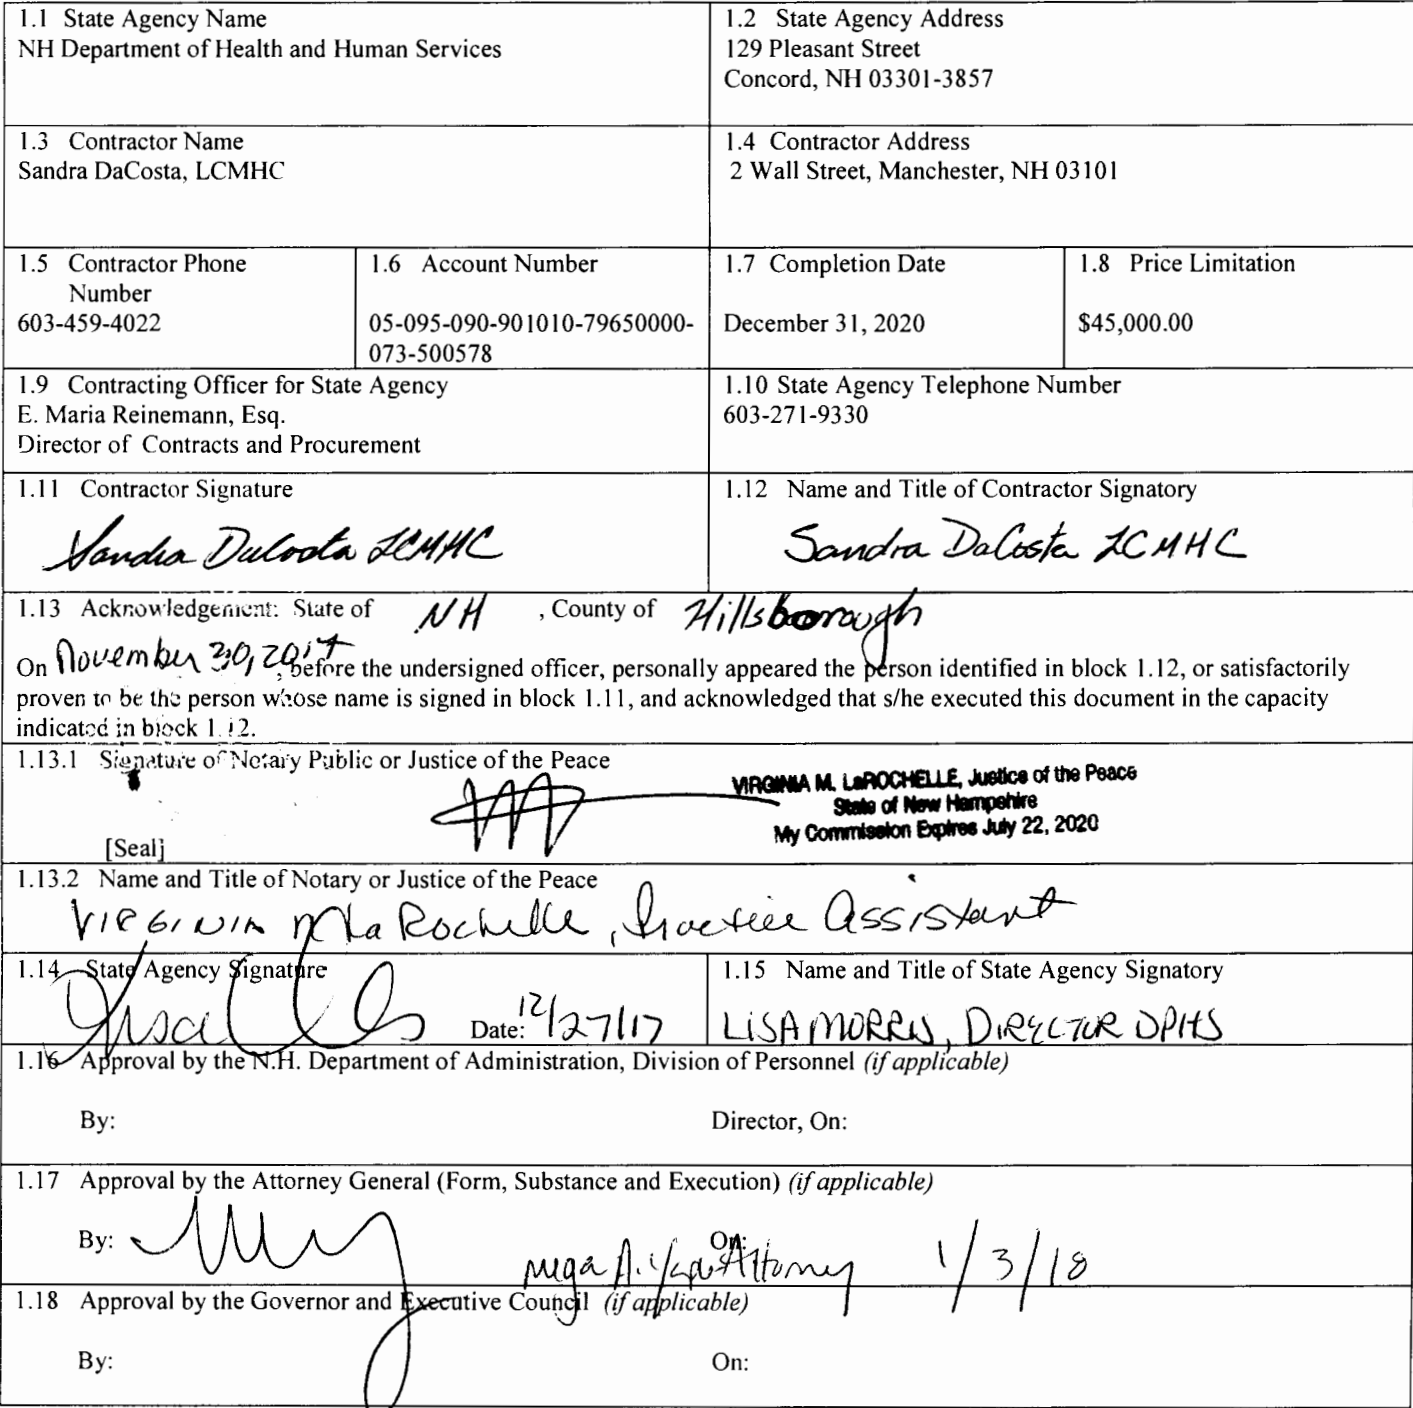 1.1 State Agency Name
NH Department of Health and Human Services
1.2 State Agency Address
129 Pleasant Street
Concord, NH 03301-3857
1.3 Contractor Name
Sandra DaCosta, LCMHC
1.4 Contractor Address
2 Wall Street, Manchester, NH 03101
1.5 Contractor Phone
Number
603-459-4022
1.6 Account Number
05-095-090-901010-79650000-
073-500578
1.7 Completion Date
December 31, 2020
1.8 Price Limitation
$45,000.00
1.9 Contracting Officer for State Agency
E. Maria Reinemann, Esq.
Director of Contracts and Procurement
1.10 State Agency Telephone Number
603-271-9330
1.11 Contractor Signature
Sandra DaCosta LCMHC
1.12 Name and Title of Contractor Signatory
Sandra DaCosta LCMHC
1.13 Acknowledgement: State of NH , County of Hillsborough
On November 30, 2017, before the undersigned officer, personally appeared the person identified in block 1.12, or satisfactorily
proven to be the person whose name is signed in block 1.11, and acknowledged that s/he executed this document in the capacity
indicated in block 1.12.
1.13.1 Signature of Notary Public or Justice of the Peace
VIRGINIA M. LaROCHELLE, Justice of the Peace
State of New Hampshire
My Commission Expires July 22, 2020
[Seal]
1.13.2 Name and Title of Notary or Justice of the Peace
VIRGINIA M LaRochelle, Practice Assistant
1.14 State Agency Signature
Date: 12/27/17
1.15 Name and Title of State Agency Signatory
LISA MORRIS, DIRECTOR DPHS
1.16 Approval by the N.H. Department of Administration, Division of Personnel (if applicable)
By: Director, On:
1.17 Approval by the Attorney General (Form, Substance and Execution) (if applicable)
By: On: Attorney 1/3/18
1.18 Approval by the Governor and Executive Council (if applicable)
By: On: